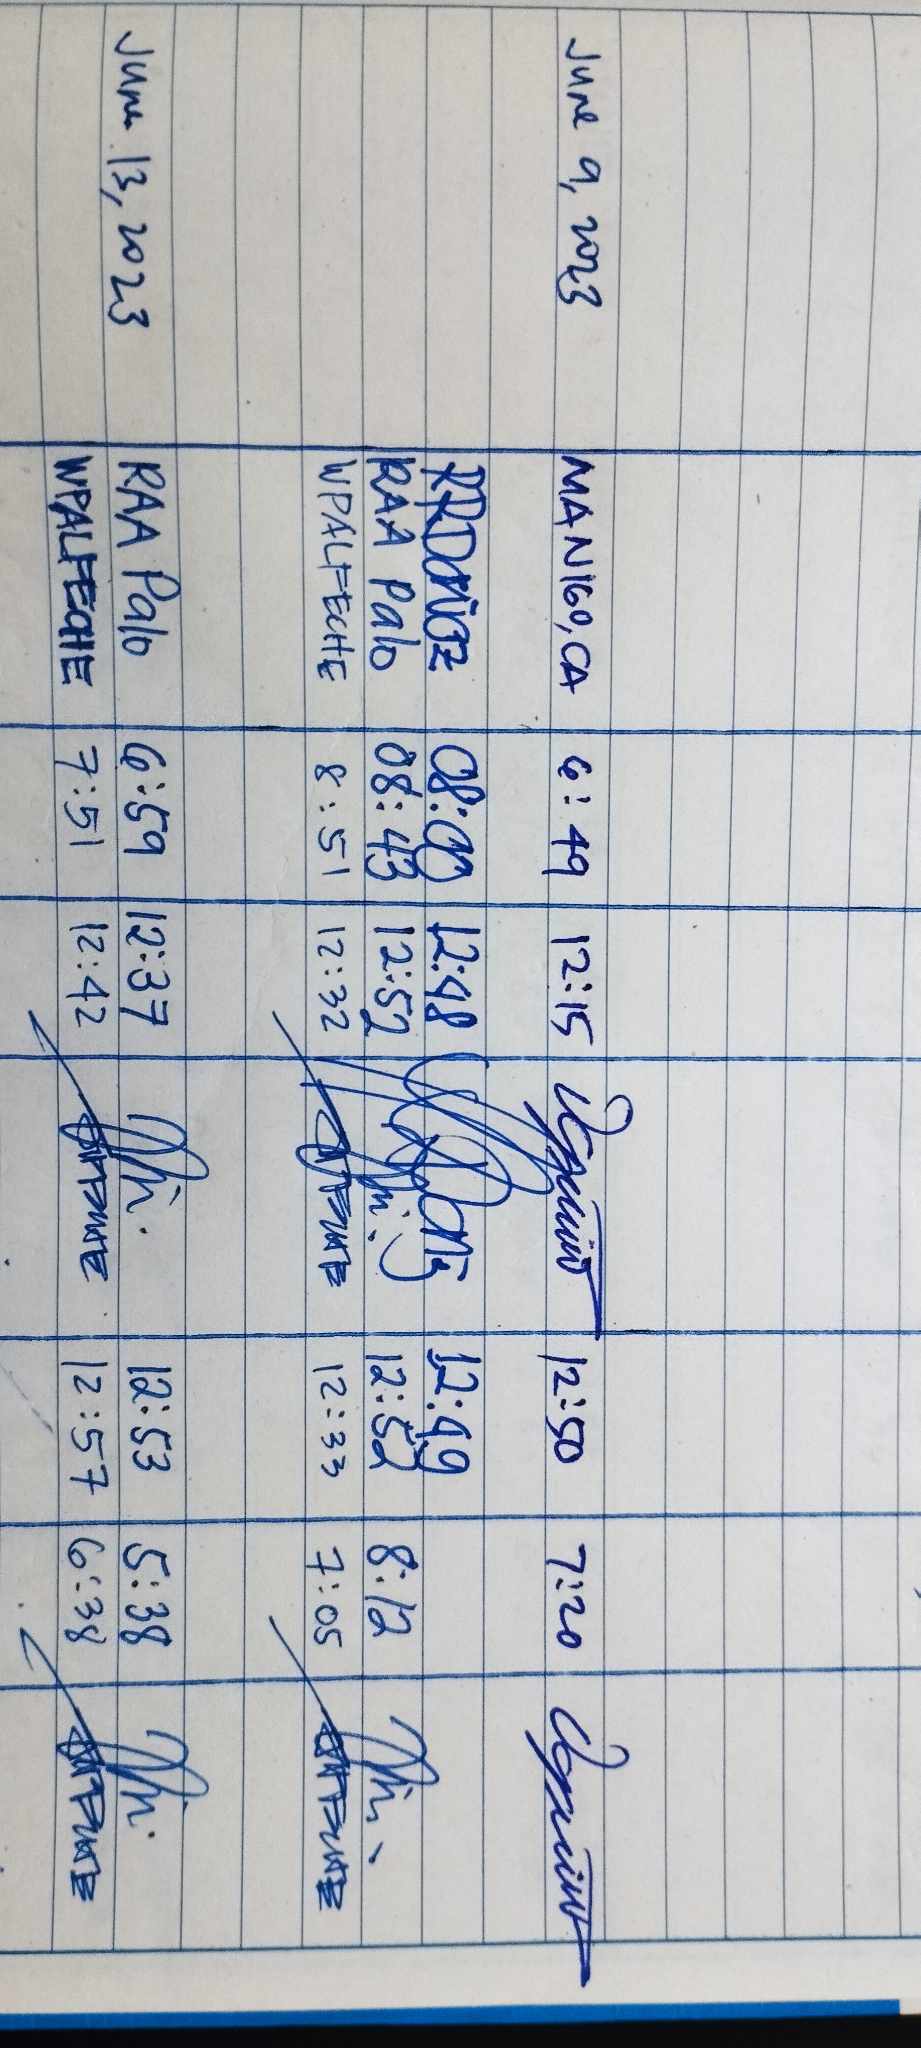 June 9, 2023 MANIGO, CA 6:49 12:15 12:50 7:20
08:00 12:48 12:49
RAA Palo 08:43 12:52 12:52 8:12
WPALFECHE 8:51 12:32 12:33 7:05
June 13, 2023 RAA Palo 6:59 12:37 12:53 5:38
WPALFECHE 7:51 12:42 12:57 6:38